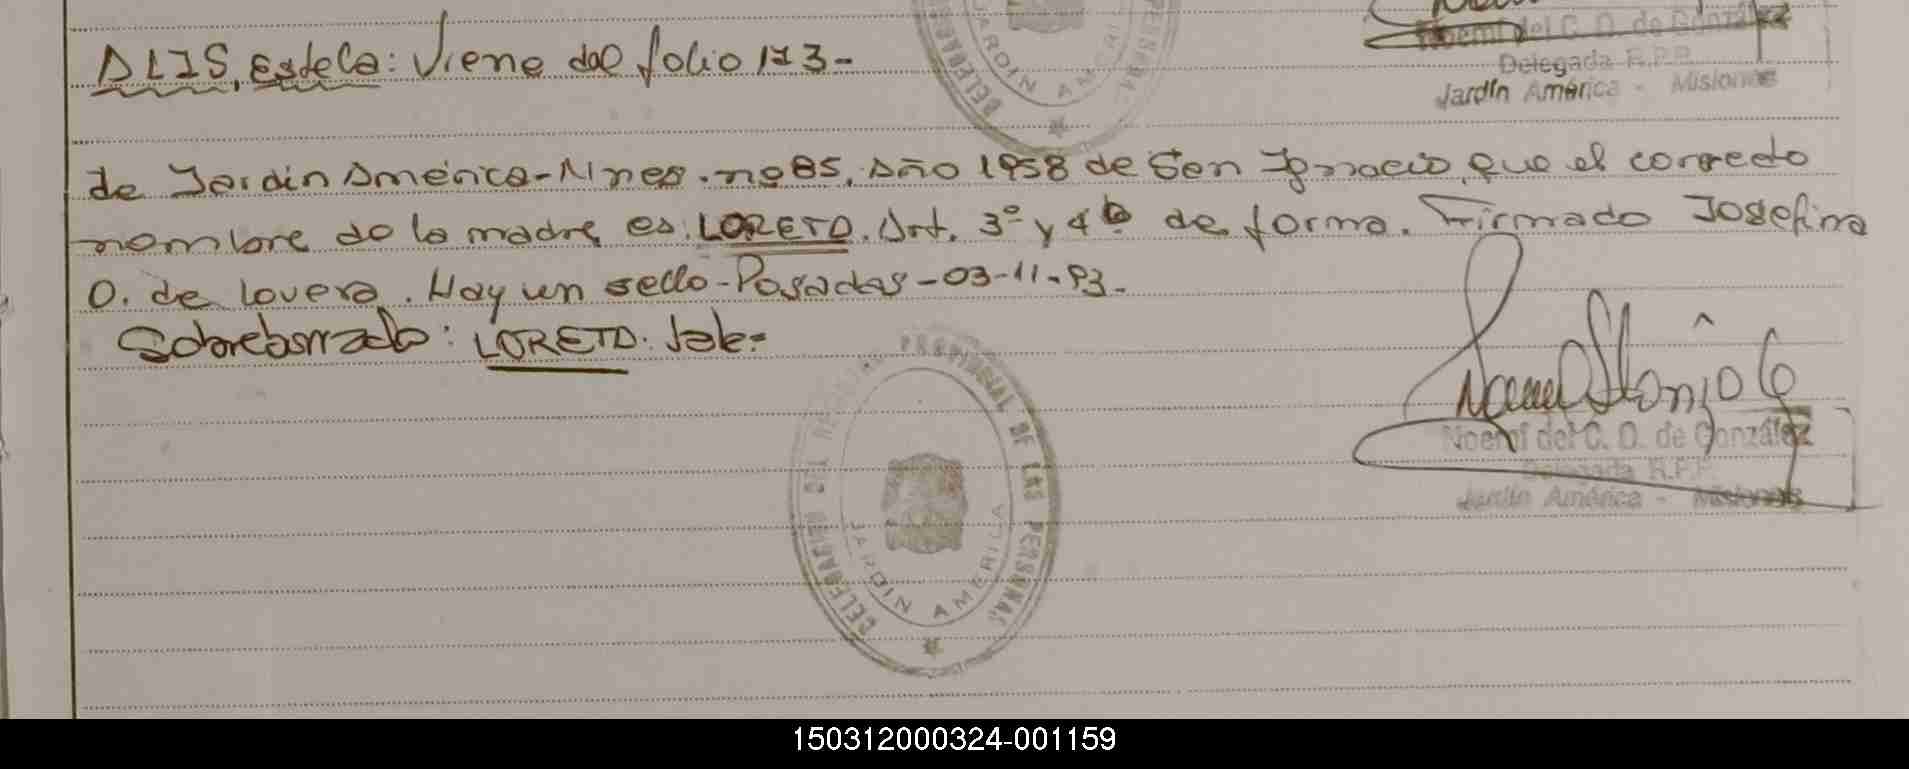 Noemí del C. O. de González
Delegada R.P.P.
Jardín América - Misiones
DELEGACI
JARDIN AMERI
PERSONAS
ALIS, Estela: Viene del folio 173-
de Jardín América-Mnes. nº 85, Año 1958 de San Ignacio, que el correcto
nombre de la madre es: LORETO. Art. 3º y 4º de forma. Firmado Josefina
O. de Lovera. Hay un sello-Posadas-03-11-93.
Sobreborrado: LORETO. Vale=
DELEGACION DEL REGISTRO PROVINCIAL DE LAS PERSONAS
JARDIN AMERICA
Noemí del C. O. de González
Delegada R.P.P.
Jardín América - Misiones
150312000324-001159